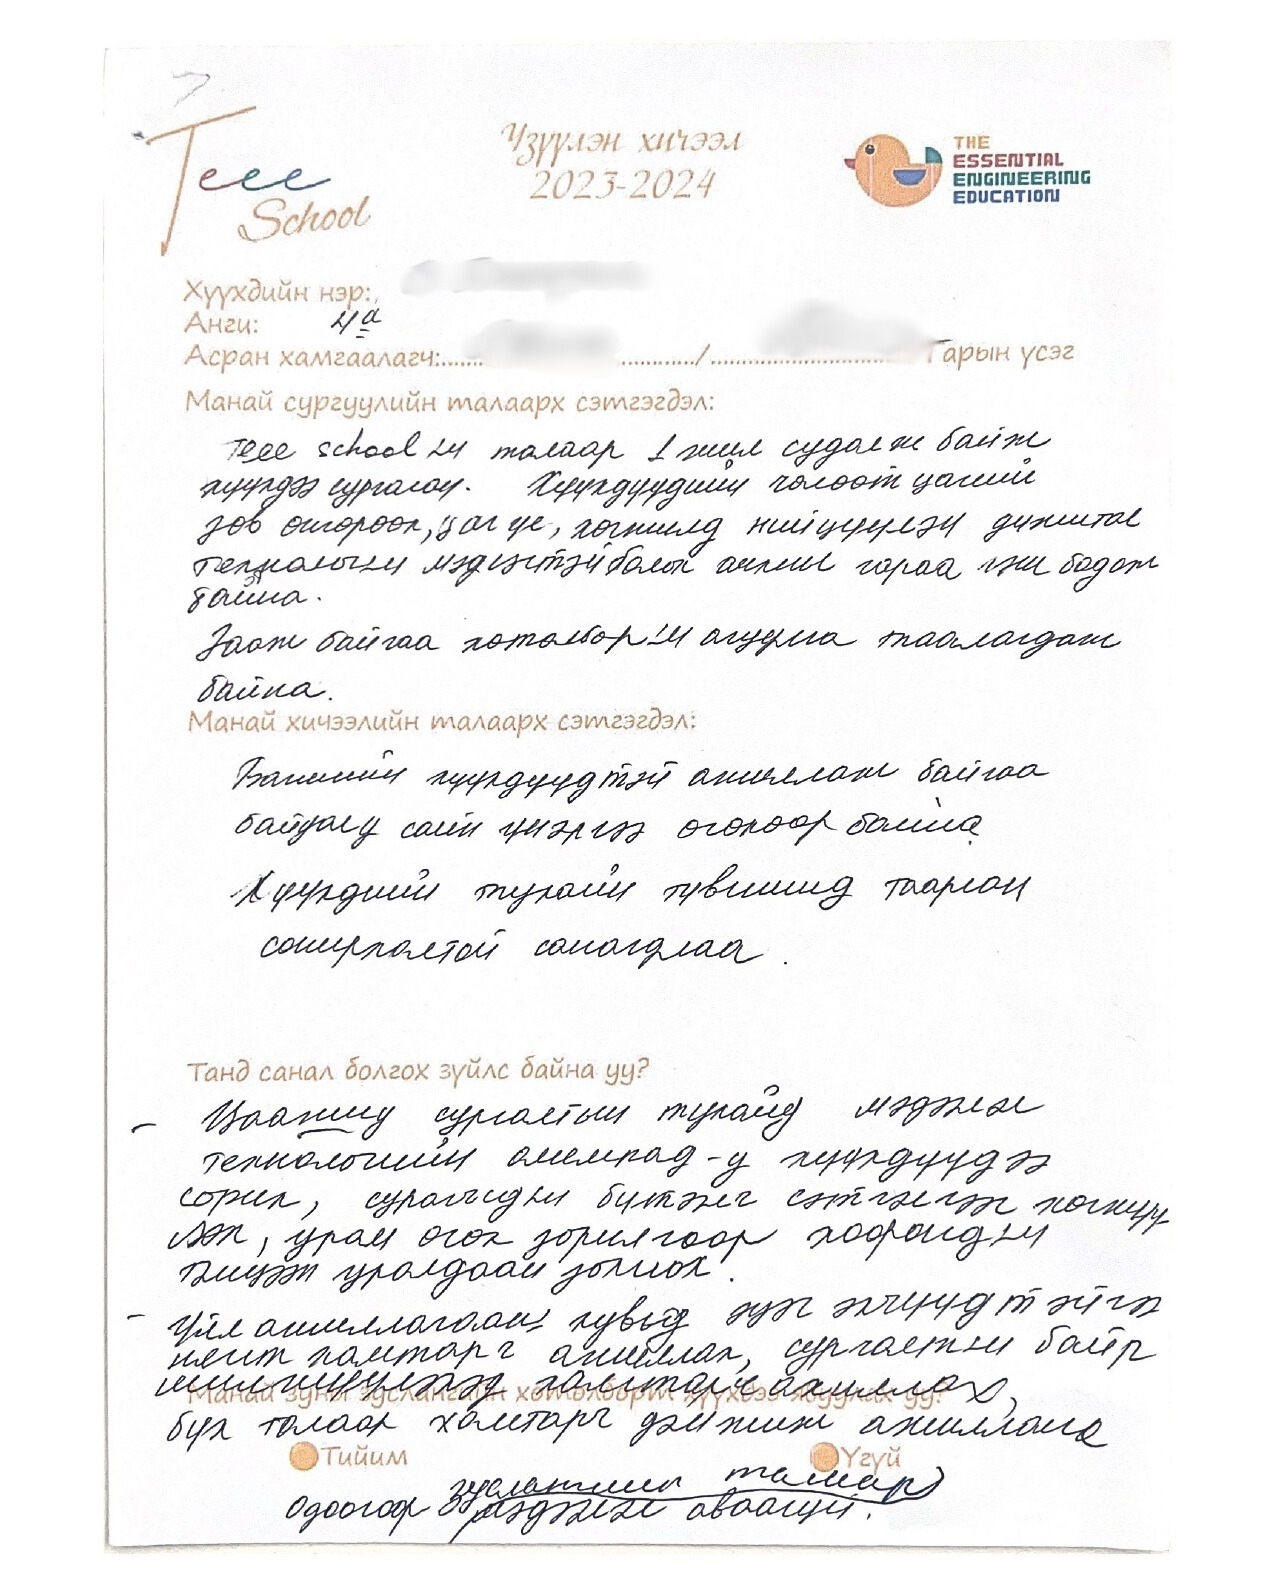 Teee School
Үзүүлэн хичээл
2023-2024
THE
ESSENTIAL
ENGINEERING
EDUCATION
Хүүхдийн нэр:
Анги: 4а
Асран хамгаалагч:............/.............. Гарын үсэг
Манай сургуулийн талаарх сэтгэгдэл:
Teee school-ын талаар 1 жил судалж байж
хүүхдээ сургасан. Хүүхдүүдийн чөлөөт цагийг
зөв өнгөрөөх, цаг үе, хөгжилд нийцүүлэн дижитал
технологын мэдлэгтэй болох анхны гараа гэж бодож
байна.
Зааж байгаа хөтөлбөрын агуулга таалагдаж
байна.
Манай хичээлийн талаарх сэтгэгдэл:
Багшийн хүүхдүүдтэй ажиллаж байгаа
байдалд сайн үнэлгээ өгөхөөр байна
Хүүхдийн тухайн түвшинд таарсан
сонирхолтой санагдлаа.
Танд санал болгох зүйлс байна уу?
- Цаашид сургалтын тухайд мэдээлэл
технологийн олимпиад-д хүүхдүүдээ
сорих, сурагчдын бүтээлч сэтгэлгээг хөгжүү
лэх, урам өгөх зорилгоор хоорондын
бичээт уралдаан зохиох.
- Үйл ажиллагааны хувьд эцэг эхчүүдтэйгээ
нягт хамтарч ажиллах, сургалтын байр
нэмэгдүүлэхэд хамтарч ажиллах,
бүх талаар хамтарч дэмжиж ажиллана
Манай зуны зуслангийн хөтөлбөрт хүүхдээ явуулах уу?
Тийим
Үгүй
зуслангийн талаар
Одоогоор мэдээлэл аваагүй.